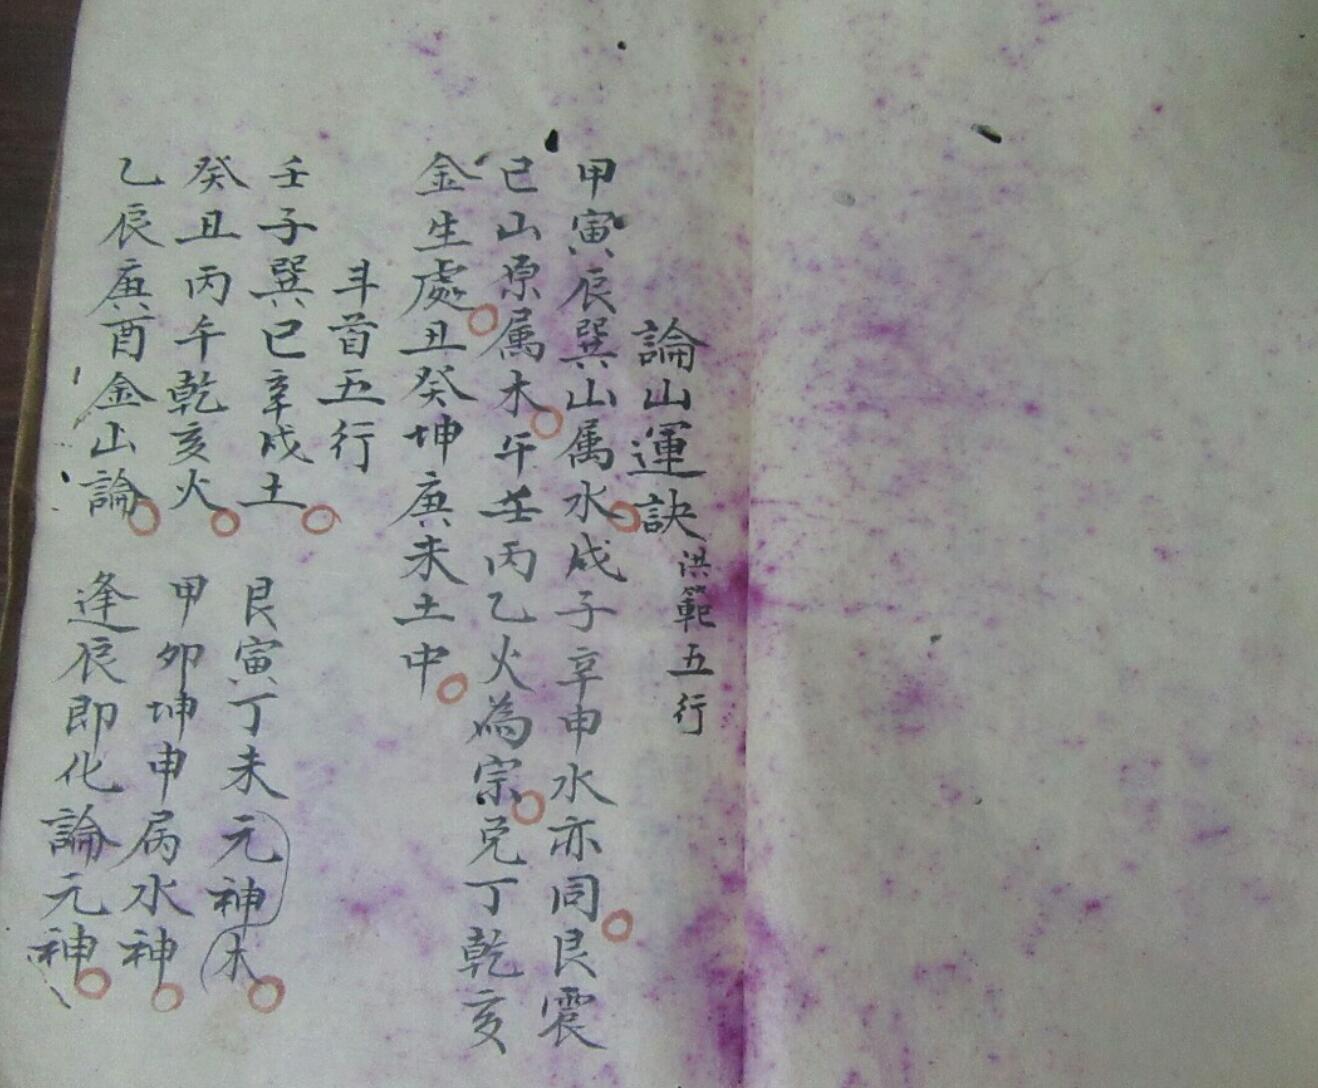 論山運訣 洪範五行
甲寅辰巽山属水。戌子辛申水亦同。艮震
已山原属木。午壬丙乙火為宗。兑丁乾亥
金生處。丑癸坤庚未土中。
斗首五行
壬子巽已辛戌土。艮寅丁未元神木。
癸丑丙午乾亥火。甲卯坤申属水神。
乙辰庚酉金山論。逢辰即化論元神。